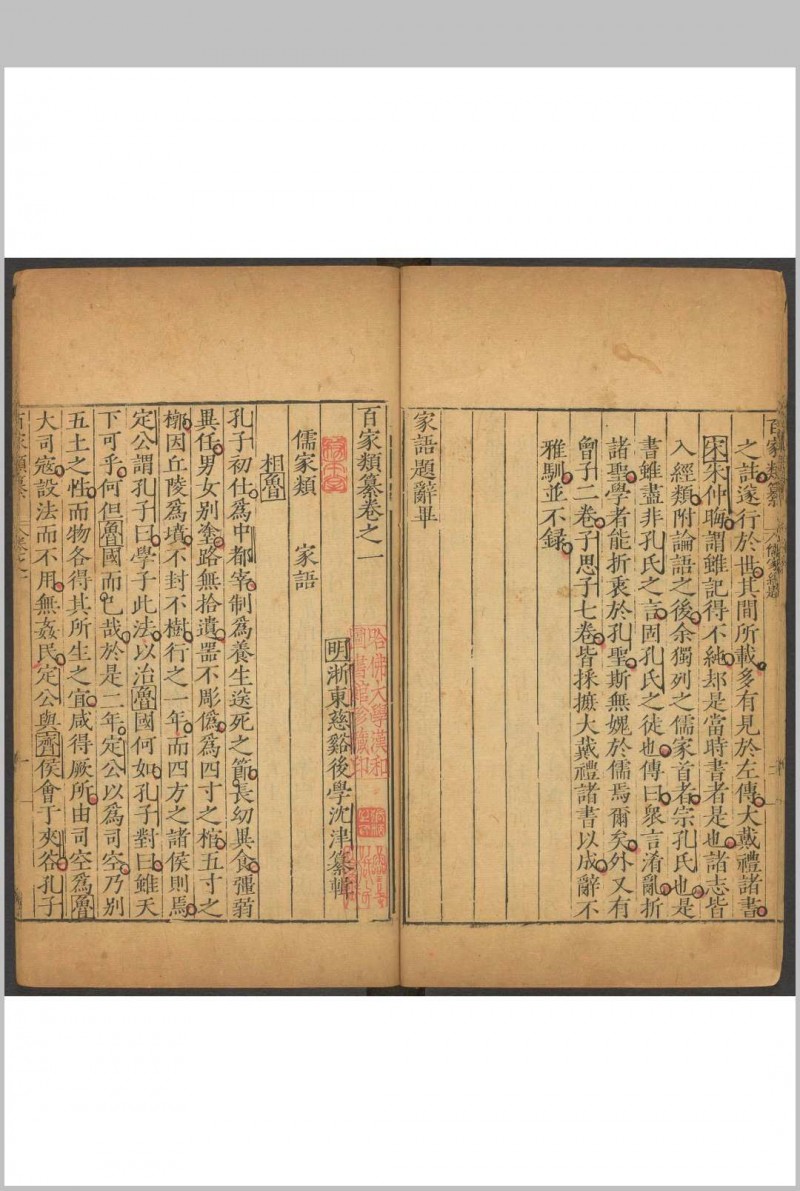 百家類纂
之誥遂行於世其間所載多有見於左傳大戴禮諸書
宋朱仲晦謂雖記得不純却是當時書者是也諸志皆
入經類附論語之後余獨列之儒家首者宗孔氏也是
書雖盡非孔氏之言固孔氏之徒也傳曰衆言淆亂折
諸聖學者能折衷於孔聖斯無媿於儒焉爾矣外又有
曾子二卷子思子七卷皆採摭大戴禮諸書以成辭不
雅馴並不録
家語題辭畢
百家類纂卷之一
明浙東慈谿後學沈津纂輯
哈佛大學漢和
圖書館珍藏印
儒家類　家語
相魯
孔子初仕爲中都宰制爲養生送死之節長幼異食彊弱
異任男女别塗路無拾遺噐不彫僞爲四寸之棺五寸之
椁因丘陵爲墳不封不樹行之一年而四方之諸侯則焉
定公謂孔子曰學子此法以治魯國何如孔子對曰雖天
下可乎何但魯國而已哉於是二年定公以爲司空乃别
五土之性而物各得其所生之宜咸得厥所由司空爲魯
大司寇設法而不用無姦民定公與齊侯會于夾谷孔子
百家類纂